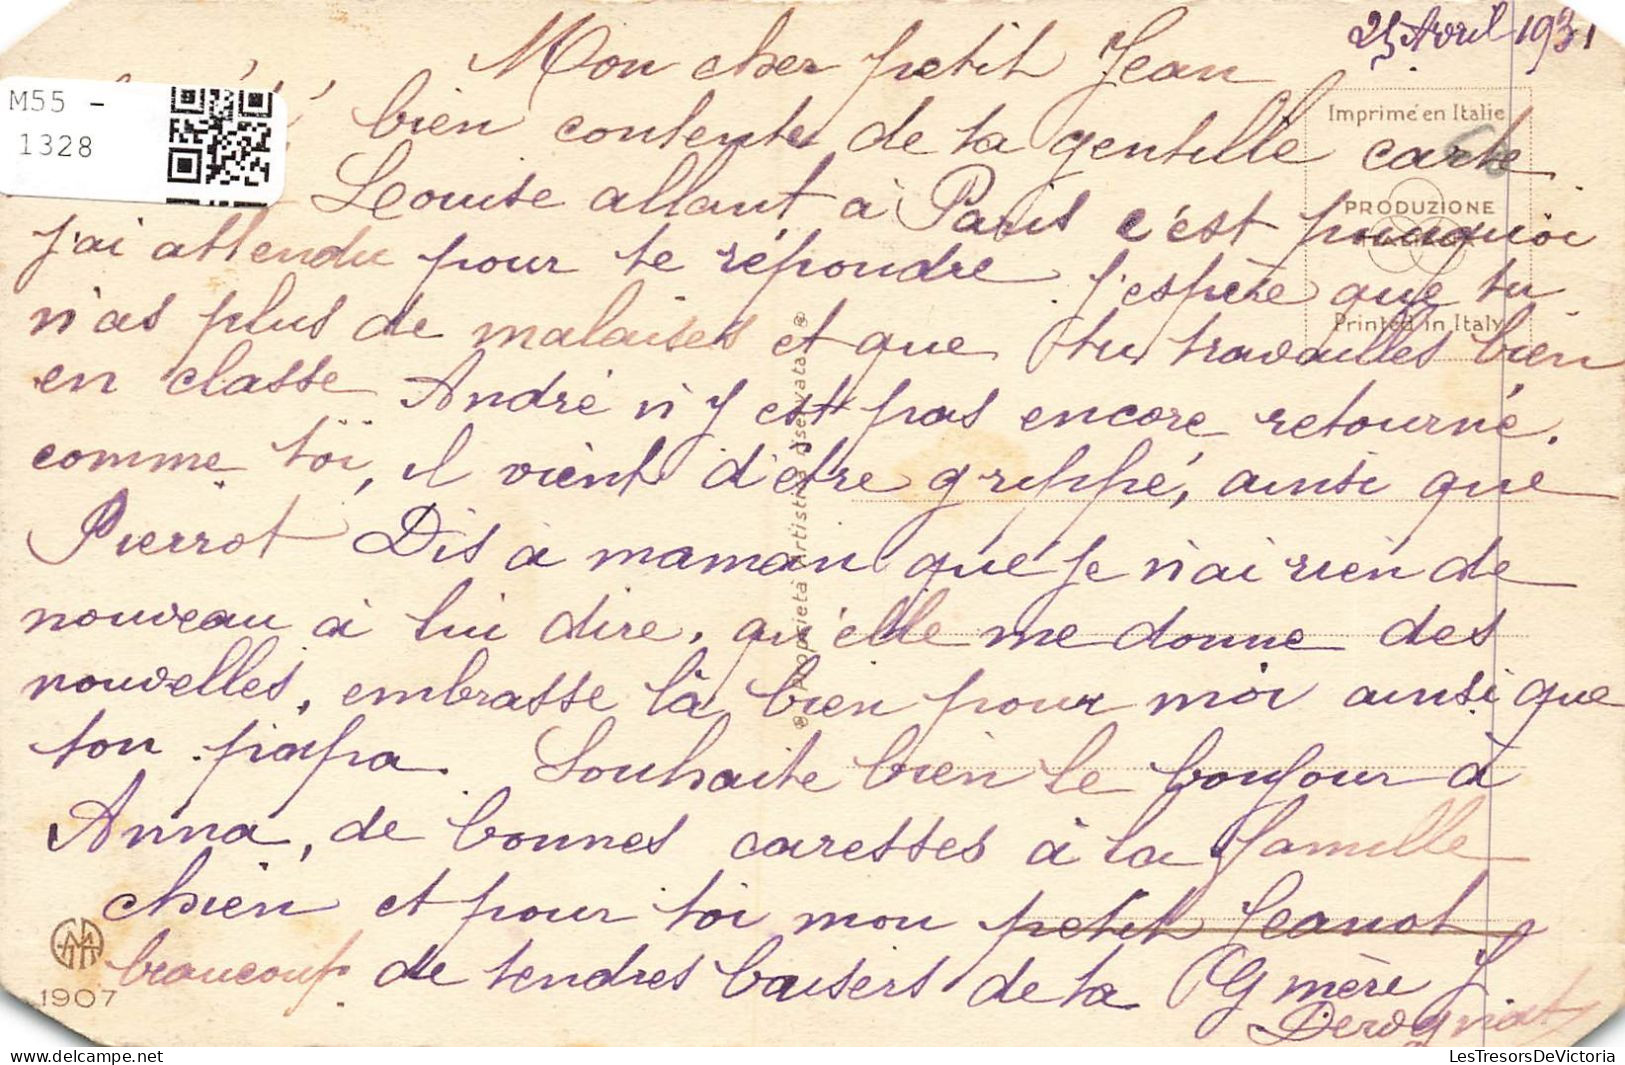 25 Avril 1931
Mon cher petit Jean
M55 -
1328
Imprimé en Italie
bien contente de ta gentille carte
Louise allant à Paris c'est pourquoi
PRODUZIONE
j'ai attendu pour te répondre j'espère que tu
n'as plus de malaises et que tu travailles bien
Printed in Italy
en classe André n'y est pas encore retourné.
comme toi, il vient d'être grippé, ainsi que
Pierrot Dis à maman que je n'ai rien de
nouveau à lui dire, qu'elle me donne des
nouvelles, embrasse là bien pour moi ainsi que
ton papa. Souhaite bien le bonjour à
Anna, de bonnes caresses à la famille
chien et pour toi mon petit Jeanot
beaucoup de tendres baisers de ta Gmère J
1907
Proprietà artistica riservata
LesTresorsDeVictoria